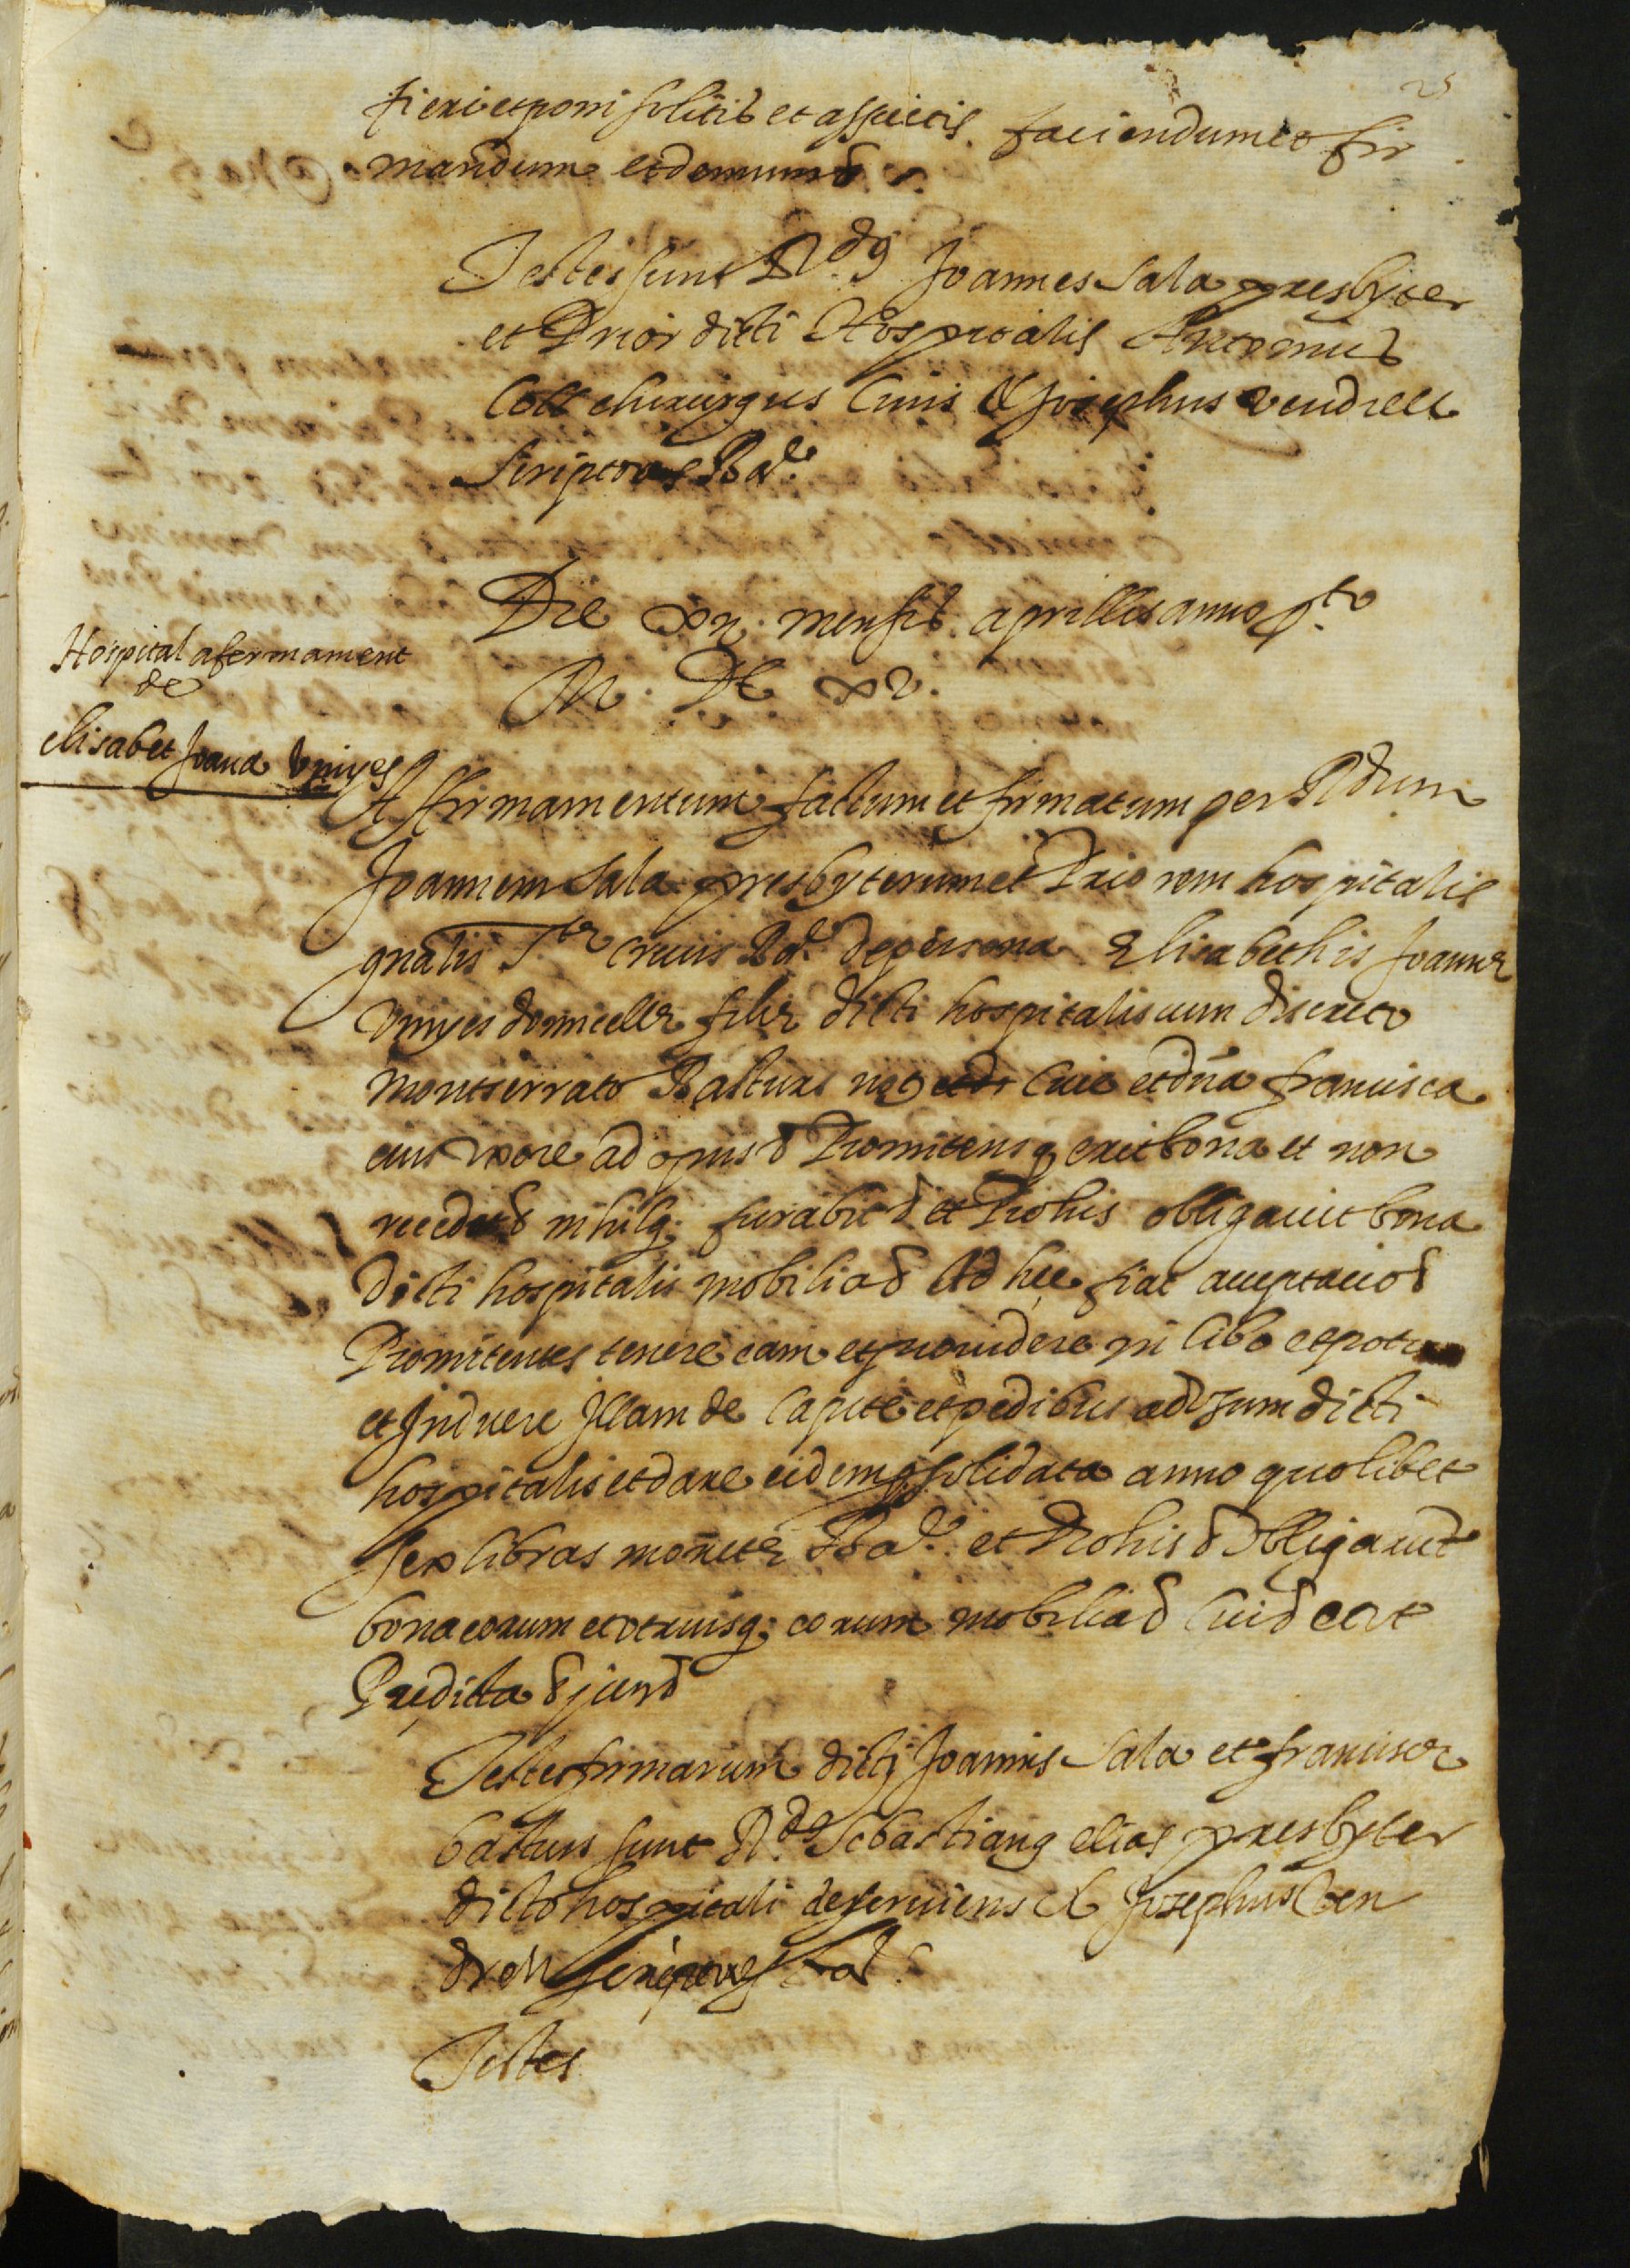 25
fieri et poni solitis et assuetis. faciendum et fir
mandum et demum &.
Testes sunt R.dus Joannes Sala presbyter
et Prior dicti Hospitalis Antonius
Coll chirurgus Civis & Josephus vendrell
scriptores Bar.
Die xx mensis aprillis anno p.to
M. DC xv.
Hospital afermament
de
elisabet Joana vinyes
Affirmamentum factum et firmatum per Rdum
Joannem Sala presbyterum et Priorem hospitalis
gnalis S.te crucis Bar. de persona Elisabethis Joanne
vinyes domicelle filie dicti hospitalis cum discreto
Montserrato Basturs not Cive et dna francisca
eius uxore ad opus & Promitens q erit bona et non
recedet & nihilq; furabit & et Pro his obligavit bona
dicti hospitalis mobilia & Ad hec fiat acceptacio &
Promitentes tenere eam et providere in cibo et potu
et Induere illam de capite et pedibus ad usum dicti
hospitalis et dare eidem p solidata anno quolibet
sex libras monete Bar. et Pro his & obligarunt
bona eorum et utriusq; eorum mobilia & Cui & cert
Predicta & jurd
Testes firmarum dictj Joannis Sala et francisce
basturs sunt R.dus Sebastianus elias presbyter
dicto hospitali deserviens & Josephus Ven
drell scriptores Bar.
Testes